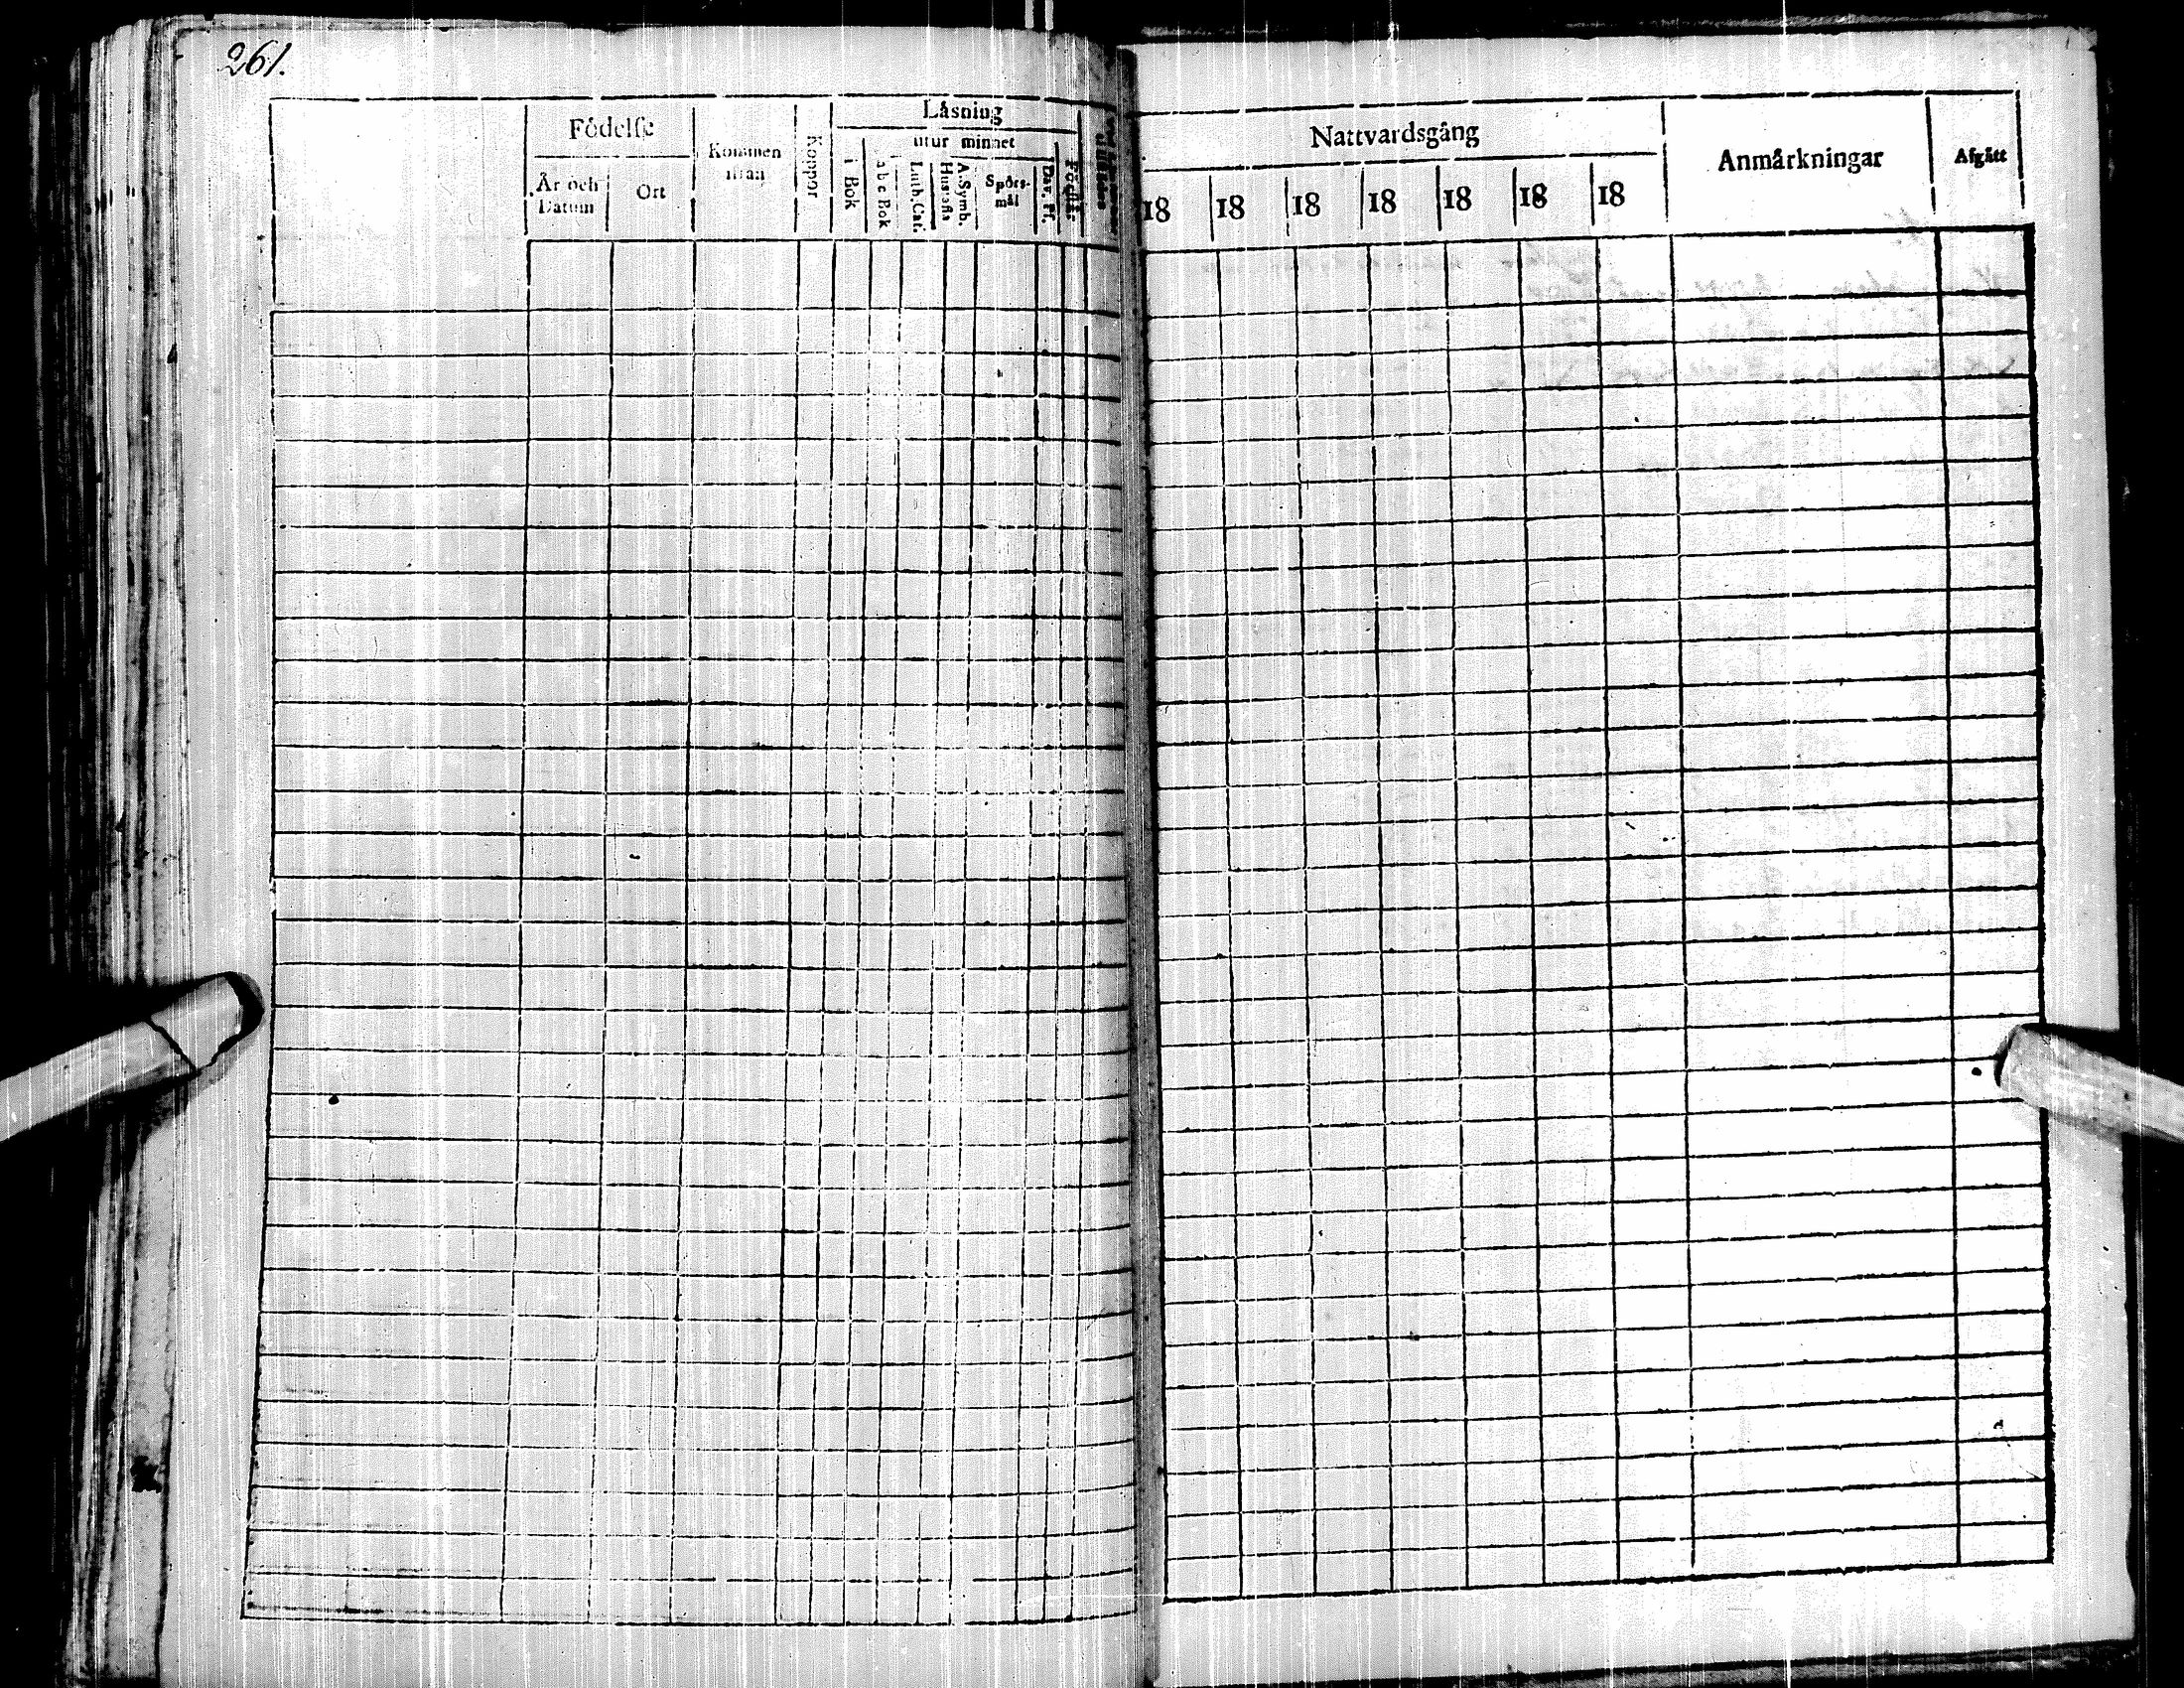 261.
Födelse
År och Datum
Ort
Kommen ifrån
Koppor
Läsning
utur minnet
i Bok
a b c Bok
Luth. Cat.
Hustafla
A. Symb.
Spörsmål
Dav. Ps.
Nattvardsgång
18 18 18 18 18 18 18
Anmärkningar
Afgått